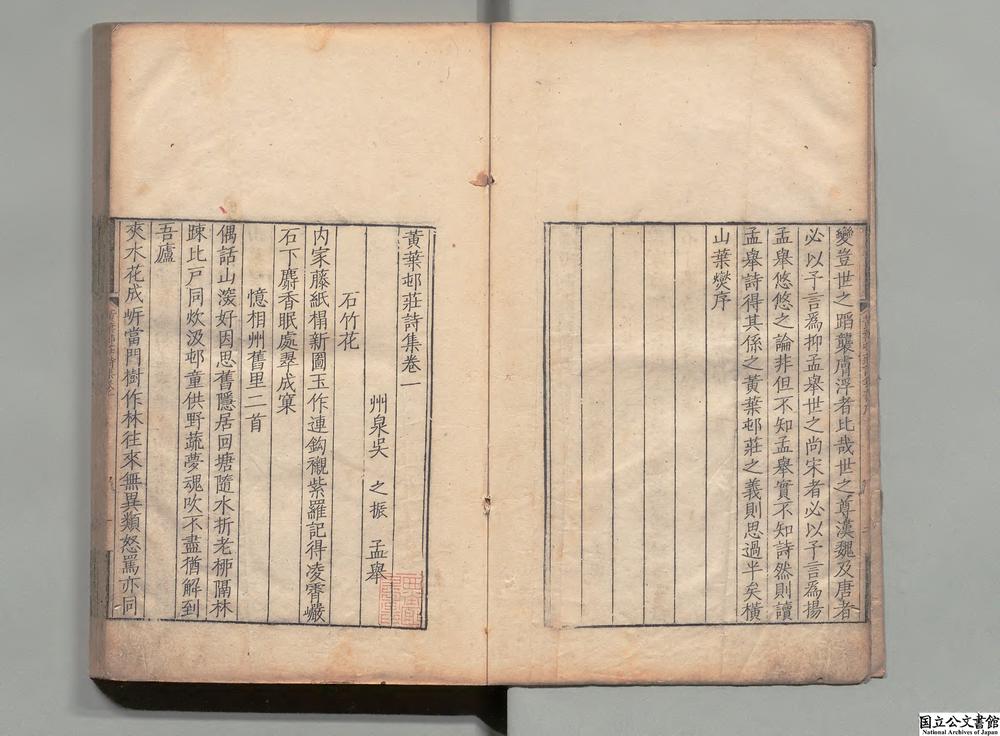 變豈世之蹈襲膚浮者比哉世之尊漢魏及唐者
必以予言爲抑孟舉世之尚宋者必以予言爲揚
孟舉悠悠之論非但不知孟舉實不知詩然則讀
孟舉詩得其係之黃葉邨莊之義則思過半矣橫
山葉燮序
黃葉邨莊詩集卷一
州泉吳之振孟舉
石竹花
內家藤紙搨新圖玉作連鈎襯紫羅記得凌霄巖
石下麝香眠處翠成窠
憶相州舊里二首
偶話山濲好因思舊隱居回塘隨水折老桺隔林
踈比戸同炊汲邨童供野蔬夢魂吹不盡猶解到
吾廬
夾水花成㘨當門樹作林往來無異類怒罵亦同
国立公文書館
National Archives of Japan